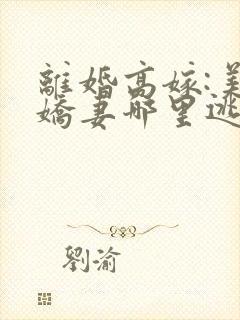 離婚高嫁:美
嬌妻哪里逃
劉渝